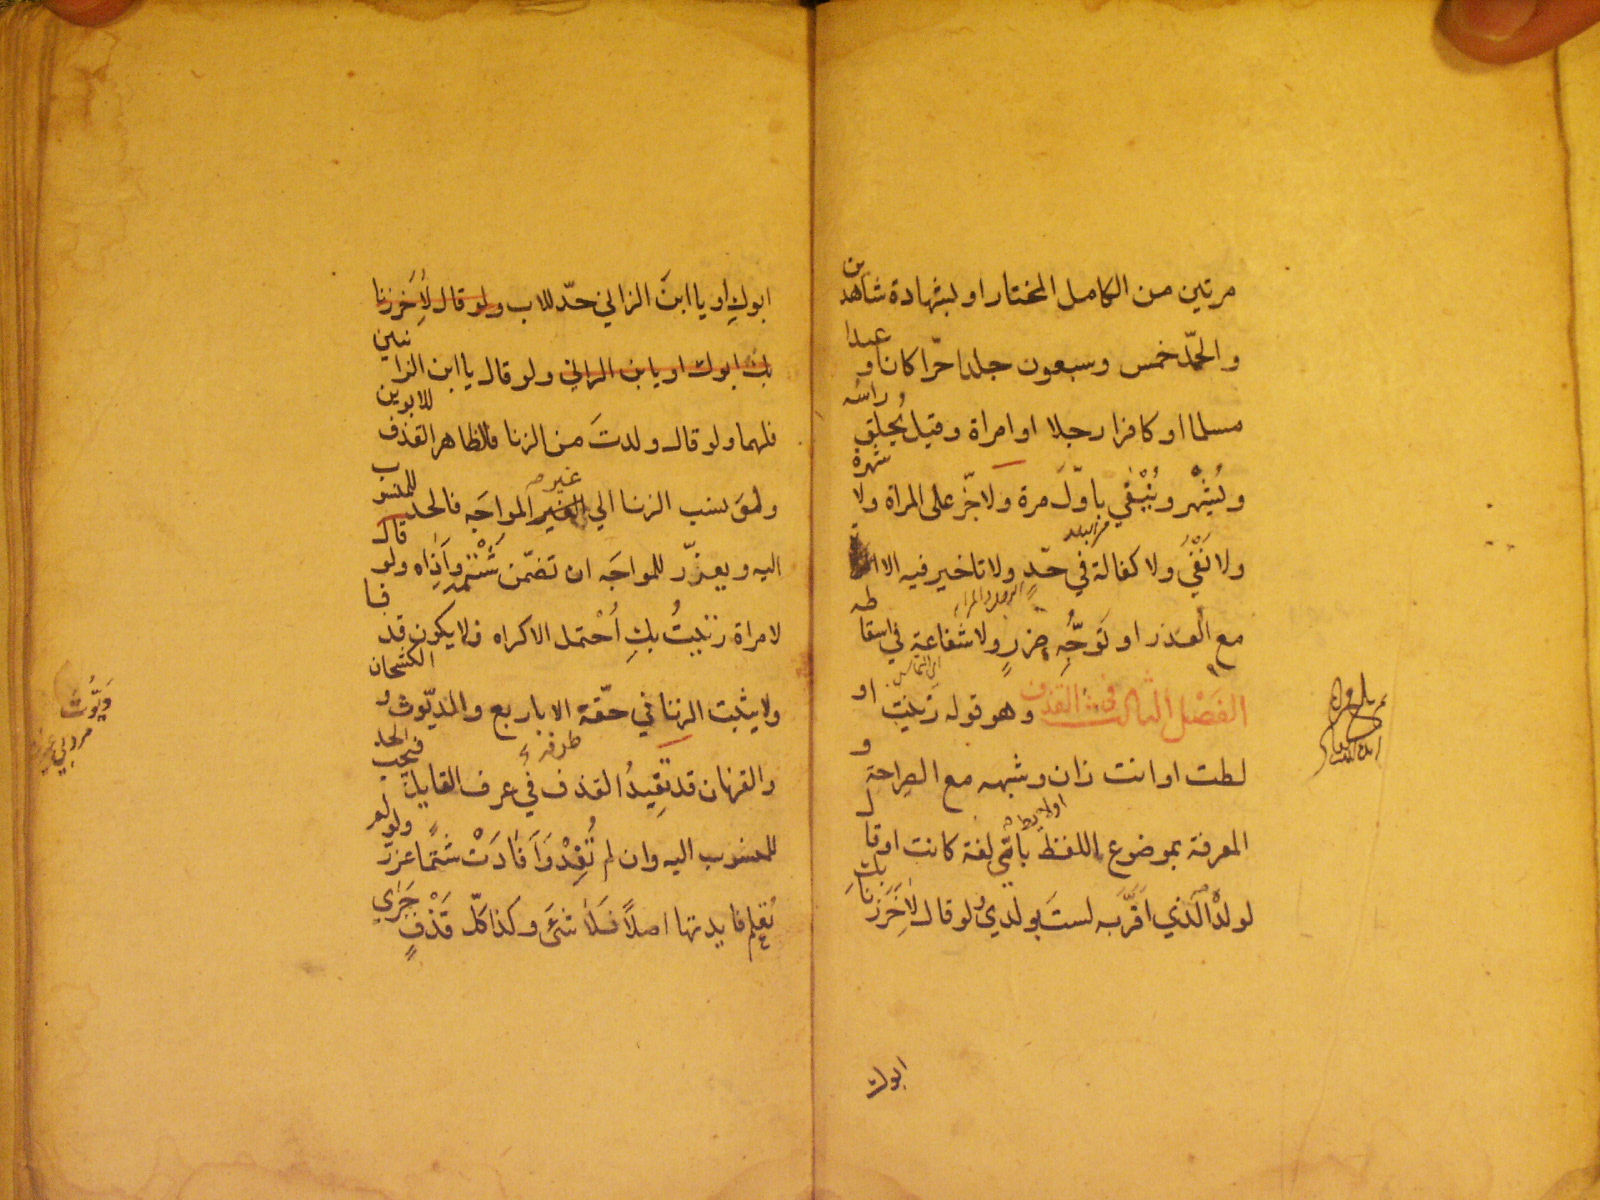 مرتين من الكامل المختار او بشهادة شاهدين
والحدّ خمس وسبعون جلدا حرّا كان او عبدا
مسلما او كافرا رجلا او امراة وقيل يُحلق راسه
ويُشهْر ويُنْفي باوّل مرة ولا جزّ على المراة ولا شهرة
ولا نَفْيَ ولا كفالة في حدّ ولا تاخير فيه الا
من البلد
مع العذر او تَوَجُّهِ ضررٍ ولا شفاعة في اسقاطه
الفَصْل الثالث في القذف وهو قوله زنيتَ او
لطت او انت زان وشبهه مع الصراحة و
المعرفة بموضوع اللفظ باي لغة كانت او قال
لولده الذي اقرّ به لستَ بولدي ولو قال لاخر زنا بك
ابوك
ابوك او يا ابنَ الزاني حدّ للاب ولو قال لاخر زنا
بك ابوك او يا بن الزاني ولو قال يا ابن الزانيين
فلهما ولو قال ولدتَ من الزنا فالظاهر القذف للابوين
غير
ومَن نسب الزنا الي الغير المواجَه فالحد للمنسوب
اليه ويعزّر للمواجَه ان تضمّن شَتْمَه واَذاه ولو قال
لامراة زنيتُ بكِ اُحْتمل الاكراه فلا يكون قذفا
ولا يثبت الزنا في حقّه الا باربع والديّوث والكشخان
والقرنان قد تُفِيدُ القذف في عرف القايل فيجب الحد
للمنسوب اليه وان لم تُفِدْ وَاَفادَتْ شَتما عزرّ ولو لم
يُعلم فايدتها اصلاً فَلا شئَ وكذا كلّ قَذْفٍ جَرَي
دَيُّوث